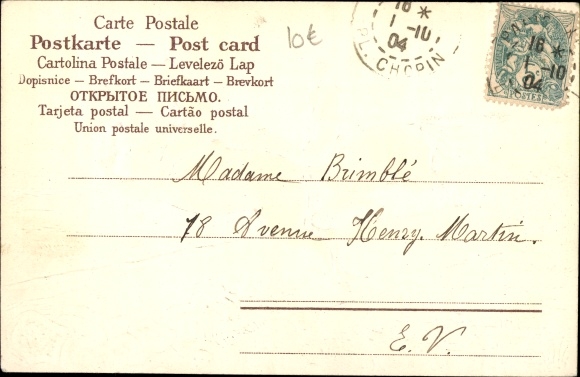 Carte Postale
Postkarte — Post card
Cartolina Postale — Levelező Lap
Dopisnice — Brefkort — Briefkaart — Brevkort
ОТКРЫТОЕ ПИСЬМО.
Tarjeta postal — Cartão postal
Union postale universelle.
10€
16 *
1 - 10
04
PL. CHOPIN
16 *
1 - 10
04
POSTES
Madame Brimblé
78 Avenue Henry. Martin.
E. V.